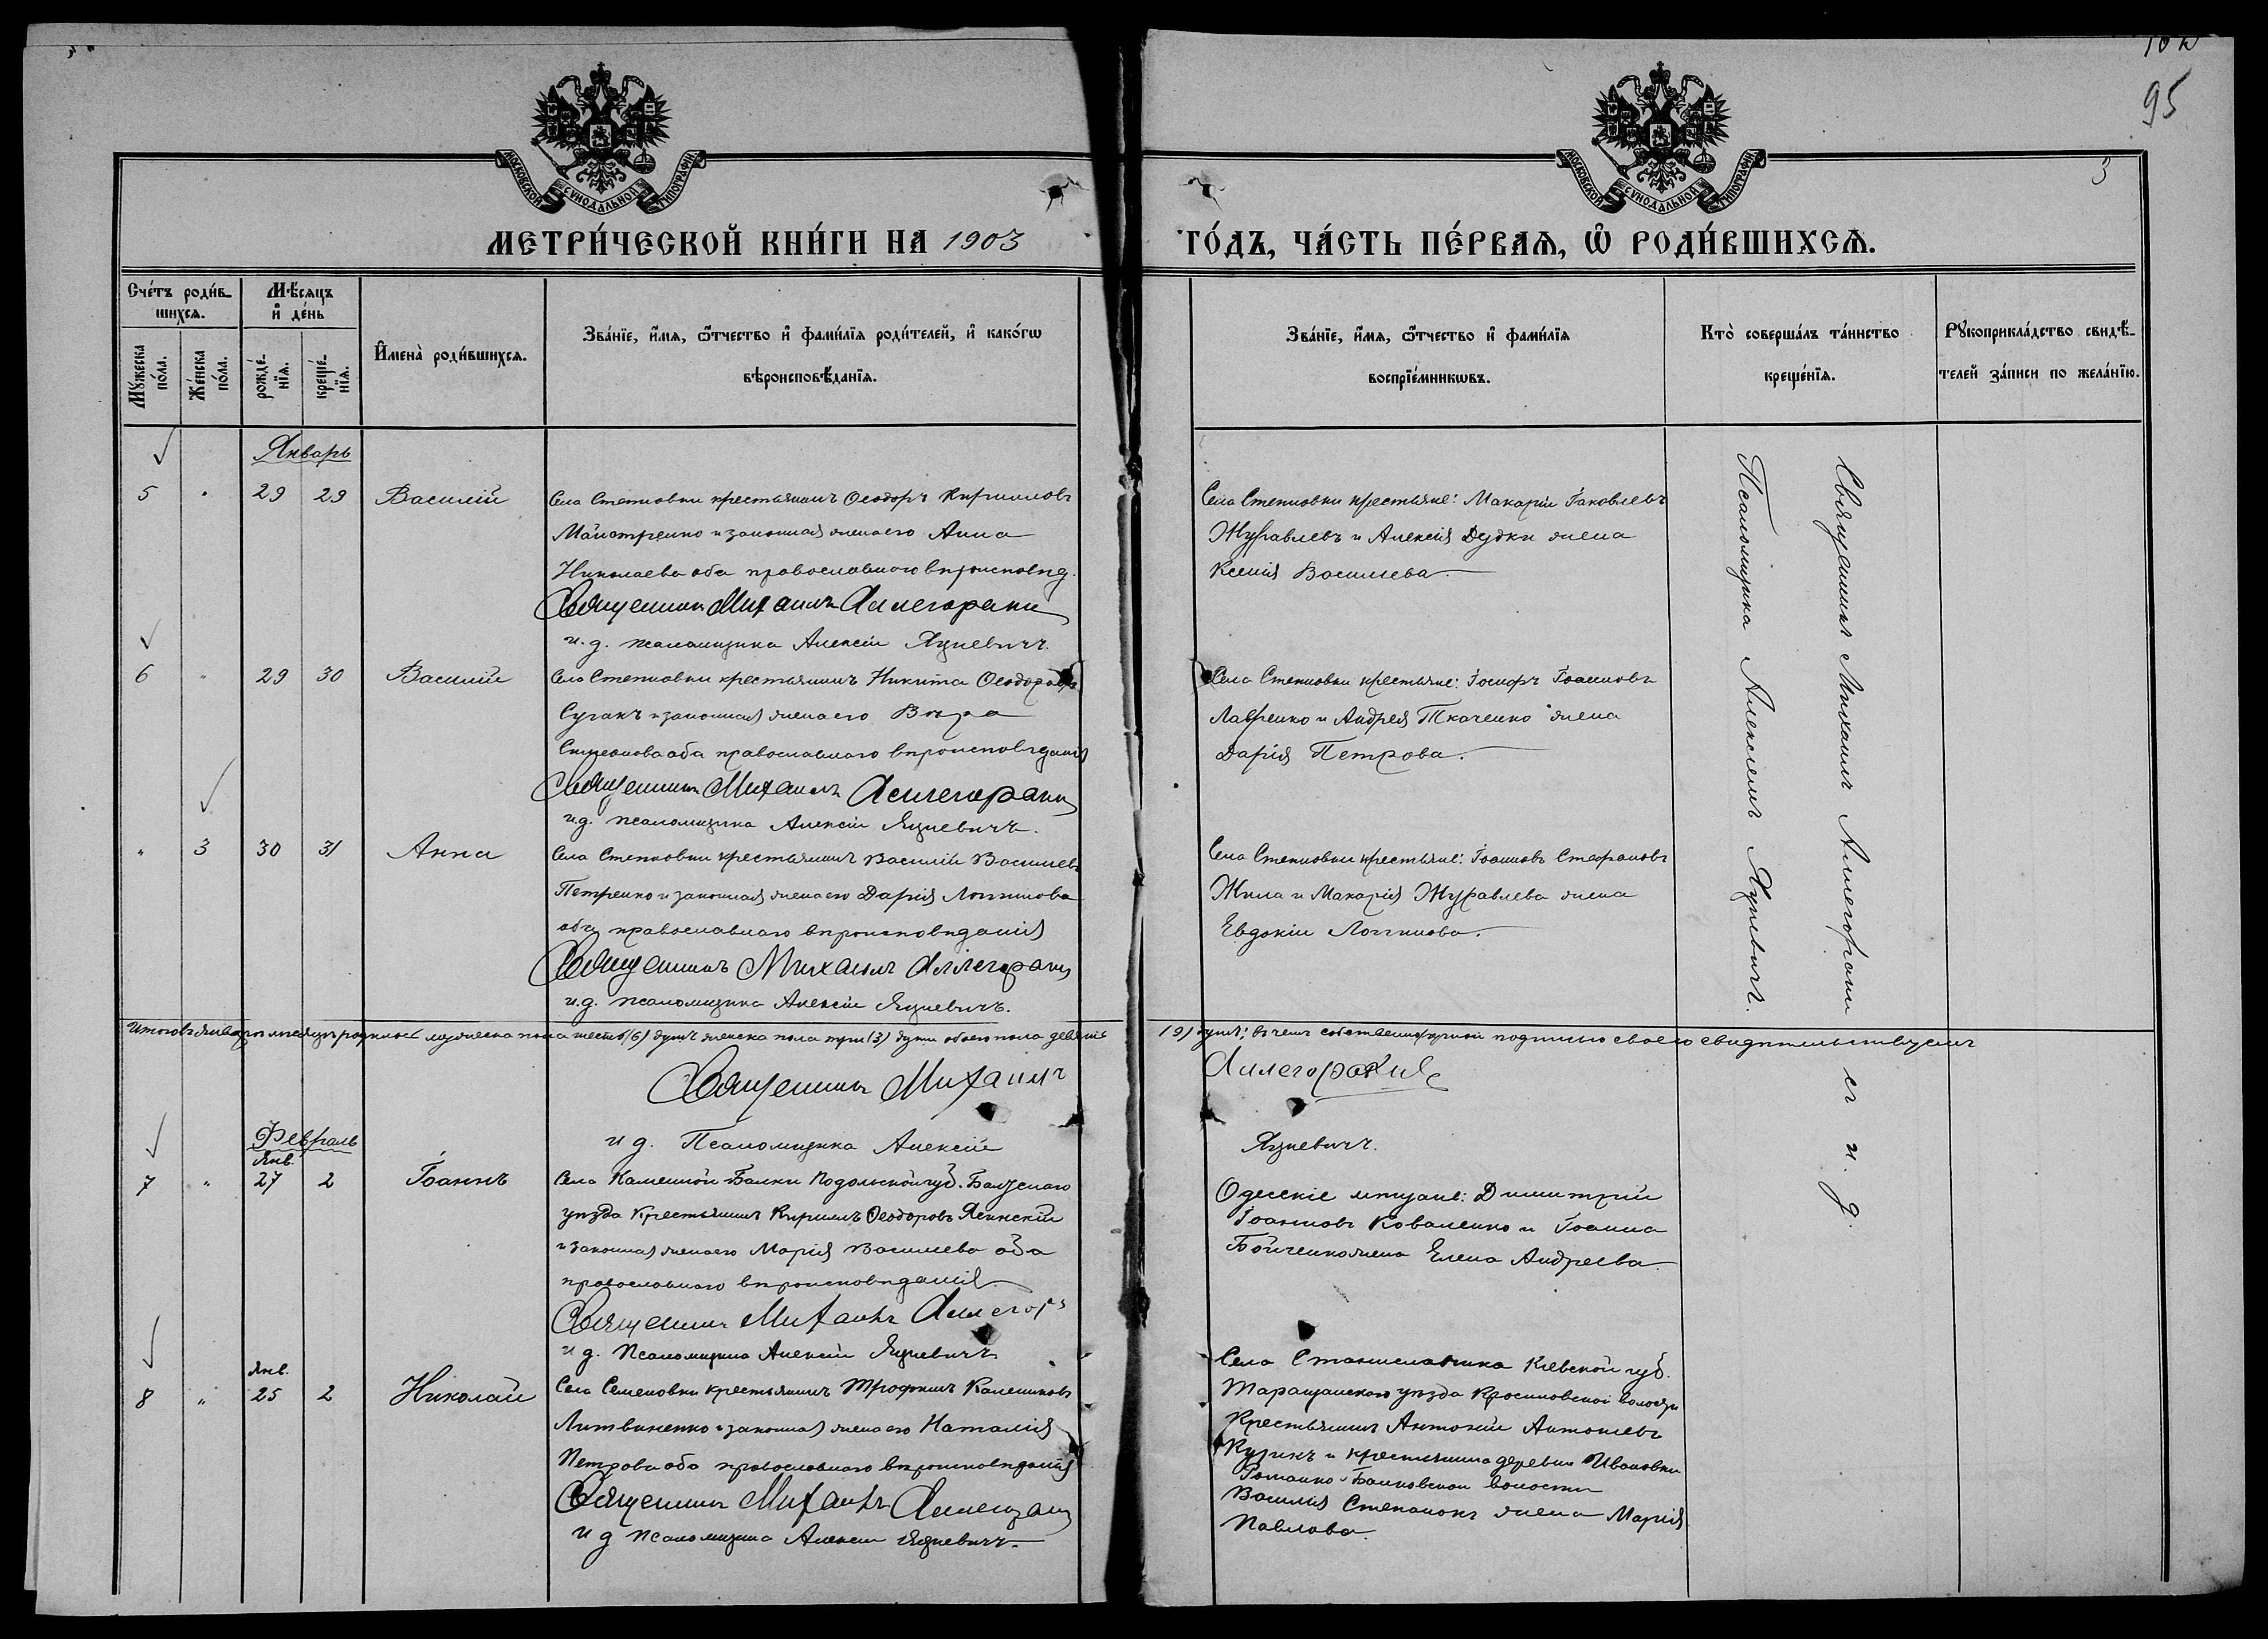 95
3
МОСКОВСКОЙ СѴНОДАЛЬНОЙ ТИПОГРАФІИ
МОСКОВСКОЙ СѴНОДАЛЬНОЙ ТИПОГРАФІИ
МЕТРИ́ЧЕСКОЙ КНИ́ГИ НА 1903 ГО́ДЪ, ЧА́СТЬ ПЕ́РВАѦ, Ѡ҆ РОДИ́ВШИХСѦ.
Сче́тъ роди́в-
шихсѧ.
Мꙋ́жеска по́ла.
Же́нска по́ла.
Мѣ́сѧцъ
и҆ де́нь
рожде́-
нїѧ.
креще́-
нїѧ.
И҆мена̀ роди́вшихсѧ.
Зва́нїе, и҆́мѧ, ѻ҆́тчество и҆ фами́лїѧ роди́телей, и҆ како́гѡ
вѣроисповѣ́данїѧ.
Зва́нїе, и҆́мѧ, ѻ҆́тчество и҆ фами́лїѧ
воспрїе́мникѡвъ.
Кто̀ соверша́лъ та́инство
креще́нїѧ.
Рꙋкоприкла́дство свидѣ́-
телей за́писи по жела́нїю.
Январь
5 " 29 29 Василій
Села Степновки крестьянинъ Ѳеодоръ Кирилловъ
Майстренко и законная жена его Анна
Николаева оба православнаго вѣроисповѣд.
Священникъ Михаилъ Аллегораки
и.д. псаломщика Алексій Яцневичъ.
Села Степновки крестьяне: Макарій Іаковлевъ
Журавлевъ и Алексія Дудки жена
Ксенія Васильева.
6 " 29 30 Василій
Села Степновки крестьянинъ Никита Ѳеодоровъ
Сугакъ и законная жена его Вѣра
Симеонова оба православнаго вѣроисповѣданія
Священникъ Михаилъ Аллегораки
и.д. псаломщика Алексій Яцневичъ.
Села Степновки крестьяне: Іосифъ Іоанновъ
Лавренко и Андрея Ткаченко жена
Дарія Петрова.
" 3 30 31 Анна
Села Степновки крестьянинъ Василій Васильевъ
Петренко и законная жена его Дарія Логгинова
оба православнаго вѣроисповѣданія
Священникъ Михаилъ Аллегораки
и.д. псаломщика Алексій Яцневичъ.
Села Степновки крестьяне: Іоанновъ Стефановъ
Жила и Макарія Журавлева жена
Евдокія Логгинова.
Итого въ январѣ мѣсяцѣ родилось мужеска пола шесть (6) душъ женска пола три (3) души обоего пола девять (9) душъ; въ чемъ собственноручной подписью своею свидѣтельствуемъ
Священникъ Михаилъ Аллегораки
и д. Псаломщика Алексій Яцневичъ.
Февраль
Янв.
7 " 27 2 Іоаннъ
Села Каменной Балки Подольской губ. Балтскаго
уѣзда крестьянинъ Кириллъ Ѳеодоровъ Ясинскій
и законная жена его Марія Васильева оба
православнаго вѣроисповѣданія
Священникъ Михаилъ Аллегор
и д. Псаломщика Алексій Яцневичъ
Одесскіе мѣщане: Димитрій
Іоанновъ Коваленко и Іоанна
Бойченко жена Елена Андреева
Янв.
8 " 25 2 Николай
Села Семеновки крестьянинъ Трофимъ Калениковъ
Литвиненко и законная жена его Наталія
Петрова оба православнаго вѣроисповѣданія
Священникъ Михаилъ Аллегораки
и д псаломщика Алексій Яцневичъ.
Села Станиславчика Кіевской губ.
Таращанскаго уѣзда волости
Крестьянинъ Антоній Антоніевъ
и крестьянина деревни Ивановки
Романко-Балковской волости
Василія Степанокъ жена Марія
Павлова.
Священникъ Михаилъ Аллегораки съ и. д.
Псаломщика Алексіемъ Яцневичъ.